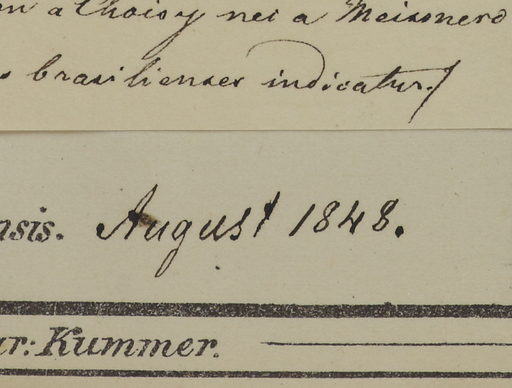 a Choisy nec a Meissnero
brasilienses indicatur.
nsis. August 1848.
ar: Kummer.